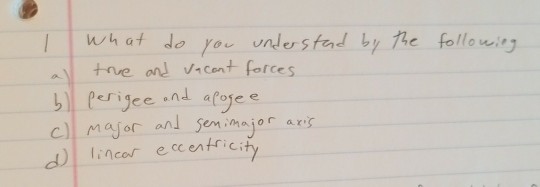 1 What do you understand by the following
a) true and vacent forces
b) perigee and apogee
c) major and semimajor axis
d) linear eccentricity